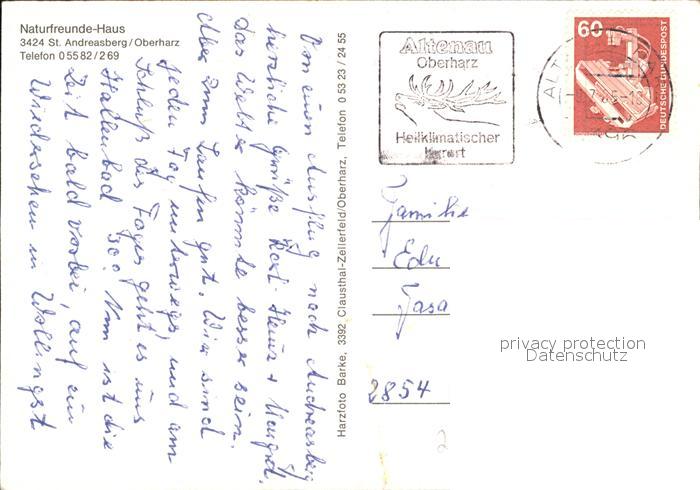 Naturfreunde-Haus
3424 St. Andreasberg/Oberharz
Telefon 0 55 82 / 2 69
Von einen Ausflug nach Andreasberg
herzliche Grüße Karl-Heinz + Margret.
Das Wetter könnte besser sein.
Aber zum Laufen gut. Wir sind
jeden Tag unterwegs, und am
Schluß des Tages geht es ins
Hallenbad 30°. Nun ist die
Zeit bald vorbei, auf ein
Wiedersehen in Wollingst
Harzfoto Barke, 3392 Clausthal-Zellerfeld/Oberharz, Telefon 0 53 23 / 24 55
Altenau
Oberharz
Heilklimatischer
Kurort
60
DEUTSCHE BUNDESPOST
Familie
Edu
Jasa
2854
privacy protection
Datenschutz